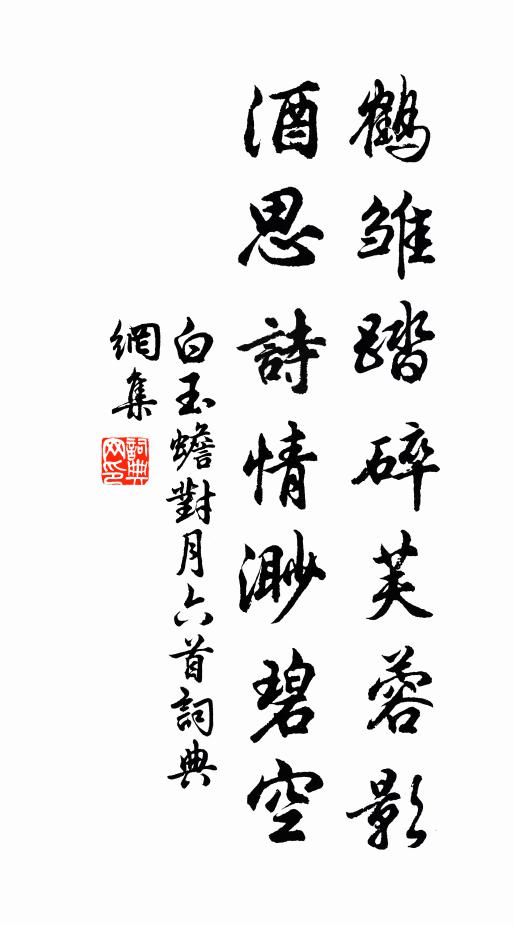 鶴雛踏碎芙蓉影
酒思詩情渺碧空
白玉蟾對月六首詞典
網集
詞典
网印